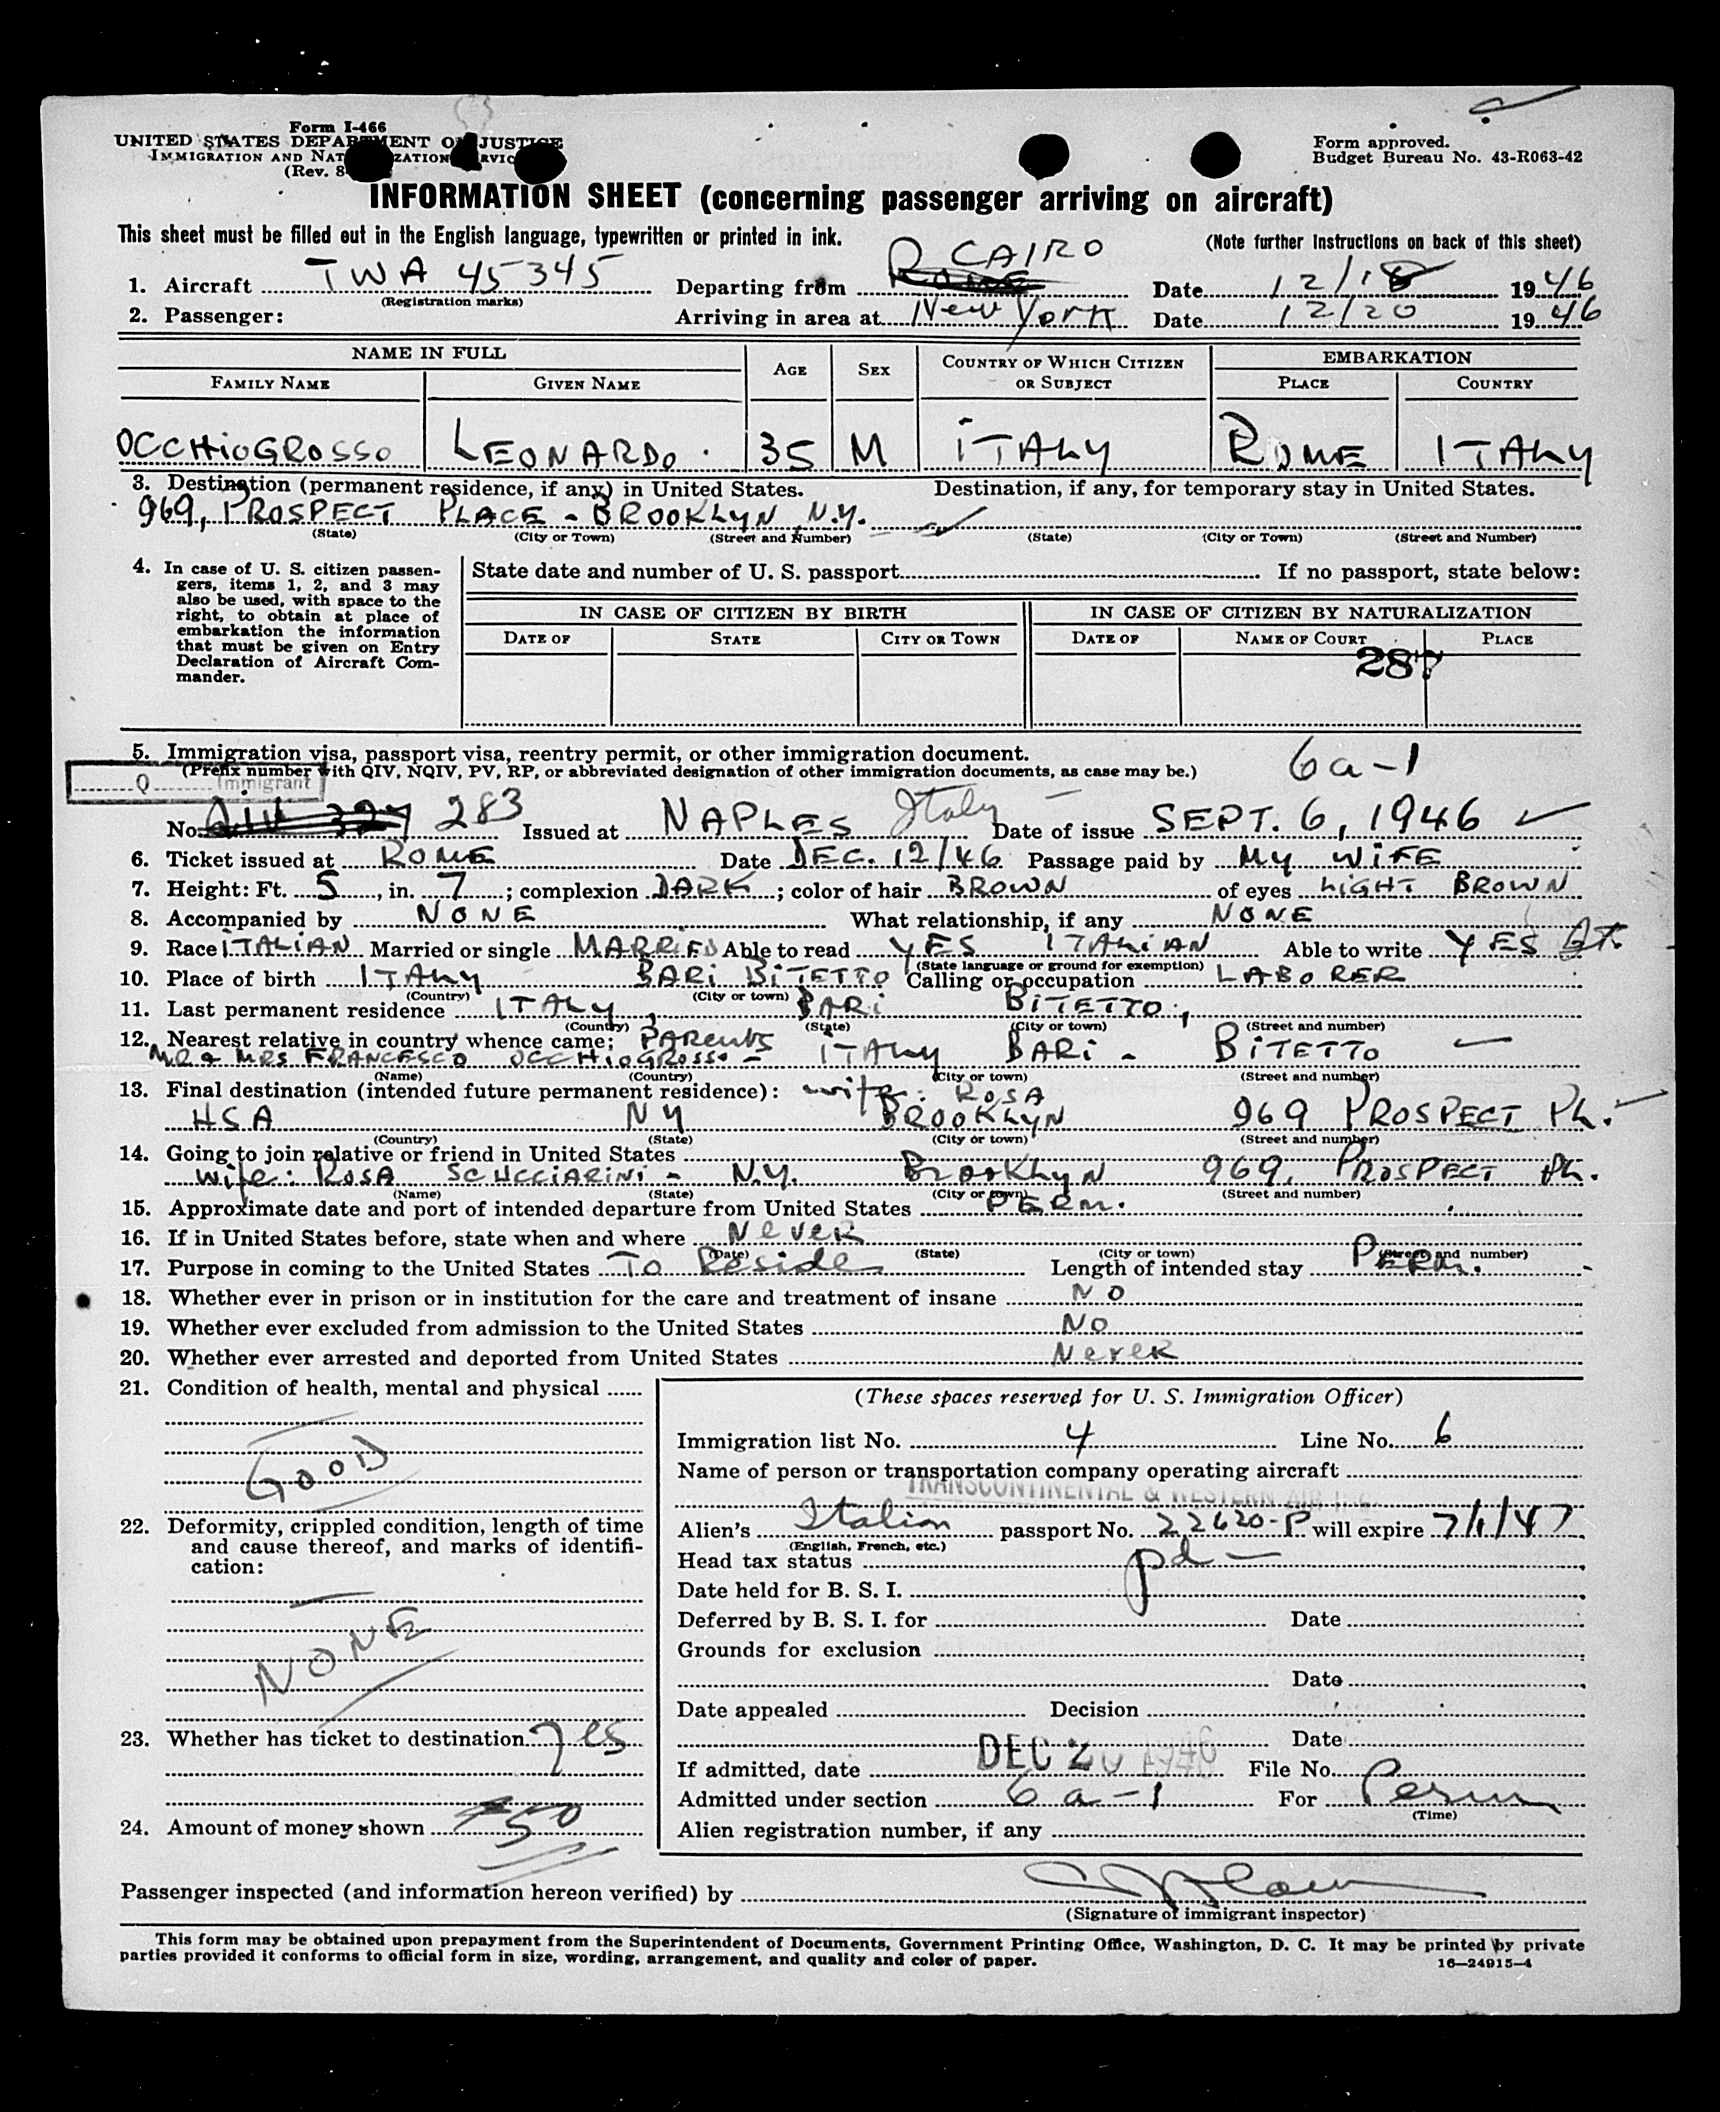 Form I-466
UNITED STATES DEPARTMENT OF JUSTICE
IMMIGRATION AND NATURALIZATION SERVICE
(Rev. 8
Form approved.
Budget Bureau No. 43-R063-42
INFORMATION SHEET (concerning passenger arriving on aircraft)
This sheet must be filled out in the English language, typewritten or printed in ink.
(Note further instructions on back of this sheet)
1. Aircraft TWA 45345 Departing from Rome CAIRO Date 12/18 1946
(Registration marks)
2. Passenger: Arriving in area at New York Date 12/20 1946
NAME IN FULL AGE SEX COUNTRY OF WHICH CITIZEN OR SUBJECT EMBARKATION
FAMILY NAME GIVEN NAME PLACE COUNTRY
OCCHIOGROSSO LEONARDO. 35 M ITALY ROME ITALY
3. Destination (permanent residence, if any) in United States. Destination, if any, for temporary stay in United States.
969, PROSPECT PLACE - BROOKLYN N.Y.
(State) (City or Town) (Street and Number) (State) (City or Town) (Street and Number)
4. In case of U. S. citizen passen-
gers, items 1, 2, and 3 may
also be used, with space to the
right, to obtain at place of
embarkation the information
that must be given on Entry
Declaration of Aircraft Com-
mander.
State date and number of U. S. passport If no passport, state below:
IN CASE OF CITIZEN BY BIRTH IN CASE OF CITIZEN BY NATURALIZATION
DATE OF STATE CITY OR TOWN DATE OF NAME OF COURT PLACE
287
5. Immigration visa, passport visa, reentry permit, or other immigration document.
(Prefix number with QIV, NQIV, PV, RP, or abbreviated designation of other immigration documents, as case may be.)
6a-1
Q Immigrant
No. 283 Issued at NAPLES Italy Date of issue SEPT. 6, 1946
6. Ticket issued at ROME Date DEC. 12/46 Passage paid by MY WIFE
7. Height: Ft. 5, in. 7; complexion DARK; color of hair BROWN of eyes LIGHT BROWN
8. Accompanied by NONE What relationship, if any NONE
9. Race ITALIAN Married or single MARRIED Able to read YES ITALIAN Able to write YES It.
(State language or ground for exemption)
10. Place of birth ITALY BARI BITETTO Calling or occupation LABORER
(Country) (City or town)
11. Last permanent residence ITALY, BARI BITETTO,
(Country) (State) (City or town) (Street and number)
12. Nearest relative in country whence came; PARENTS
MR & MRS FRANCESCO OCCHIOGROSSO - ITALY BARI - BITETTO
(Name) (Country) (City or town) (Street and number)
13. Final destination (intended future permanent residence): wife: ROSA
USA NY BROOKLYN 969 PROSPECT PL.
(Country) (State) (City or town) (Street and number)
14. Going to join relative or friend in United States
Wife: ROSA SCUCCIARINI - N.Y. BROOKLYN 969, PROSPECT PL.
(Name) (State) (City or town) (Street and number)
15. Approximate date and port of intended departure from United States PERM.
16. If in United States before, state when and where NEVER
(Date) (State) (City or town) (Street and number)
17. Purpose in coming to the United States To Reside Length of intended stay PERM.
18. Whether ever in prison or in institution for the care and treatment of insane NO
19. Whether ever excluded from admission to the United States NO
20. Whether ever arrested and deported from United States Never
21. Condition of health, mental and physical
GOOD
22. Deformity, crippled condition, length of time
and cause thereof, and marks of identifi-
cation:
NONE
23. Whether has ticket to destination yes
24. Amount of money shown $50
(These spaces reserved for U. S. Immigration Officer)
Immigration list No. 4 Line No. 6
Name of person or transportation company operating aircraft
TRANSCONTINENTAL & WESTERN AIR INC.
Alien's Italian passport No. 22620-P will expire 7/1/47
(English, French, etc.)
Head tax status pd -
Date held for B. S. I.
Deferred by B. S. I. for Date
Grounds for exclusion
Date
Date appealed Decision
Date
If admitted, date DEC 20 1946 File No.
Admitted under section 6a-1 For Perm
(Time)
Alien registration number, if any
Passenger inspected (and information hereon verified) by
(Signature of immigrant inspector)
This form may be obtained upon prepayment from the Superintendent of Documents, Government Printing Office, Washington, D. C. It may be printed by private
parties provided it conforms to official form in size, wording, arrangement, and quality and color of paper.
16-24915-4